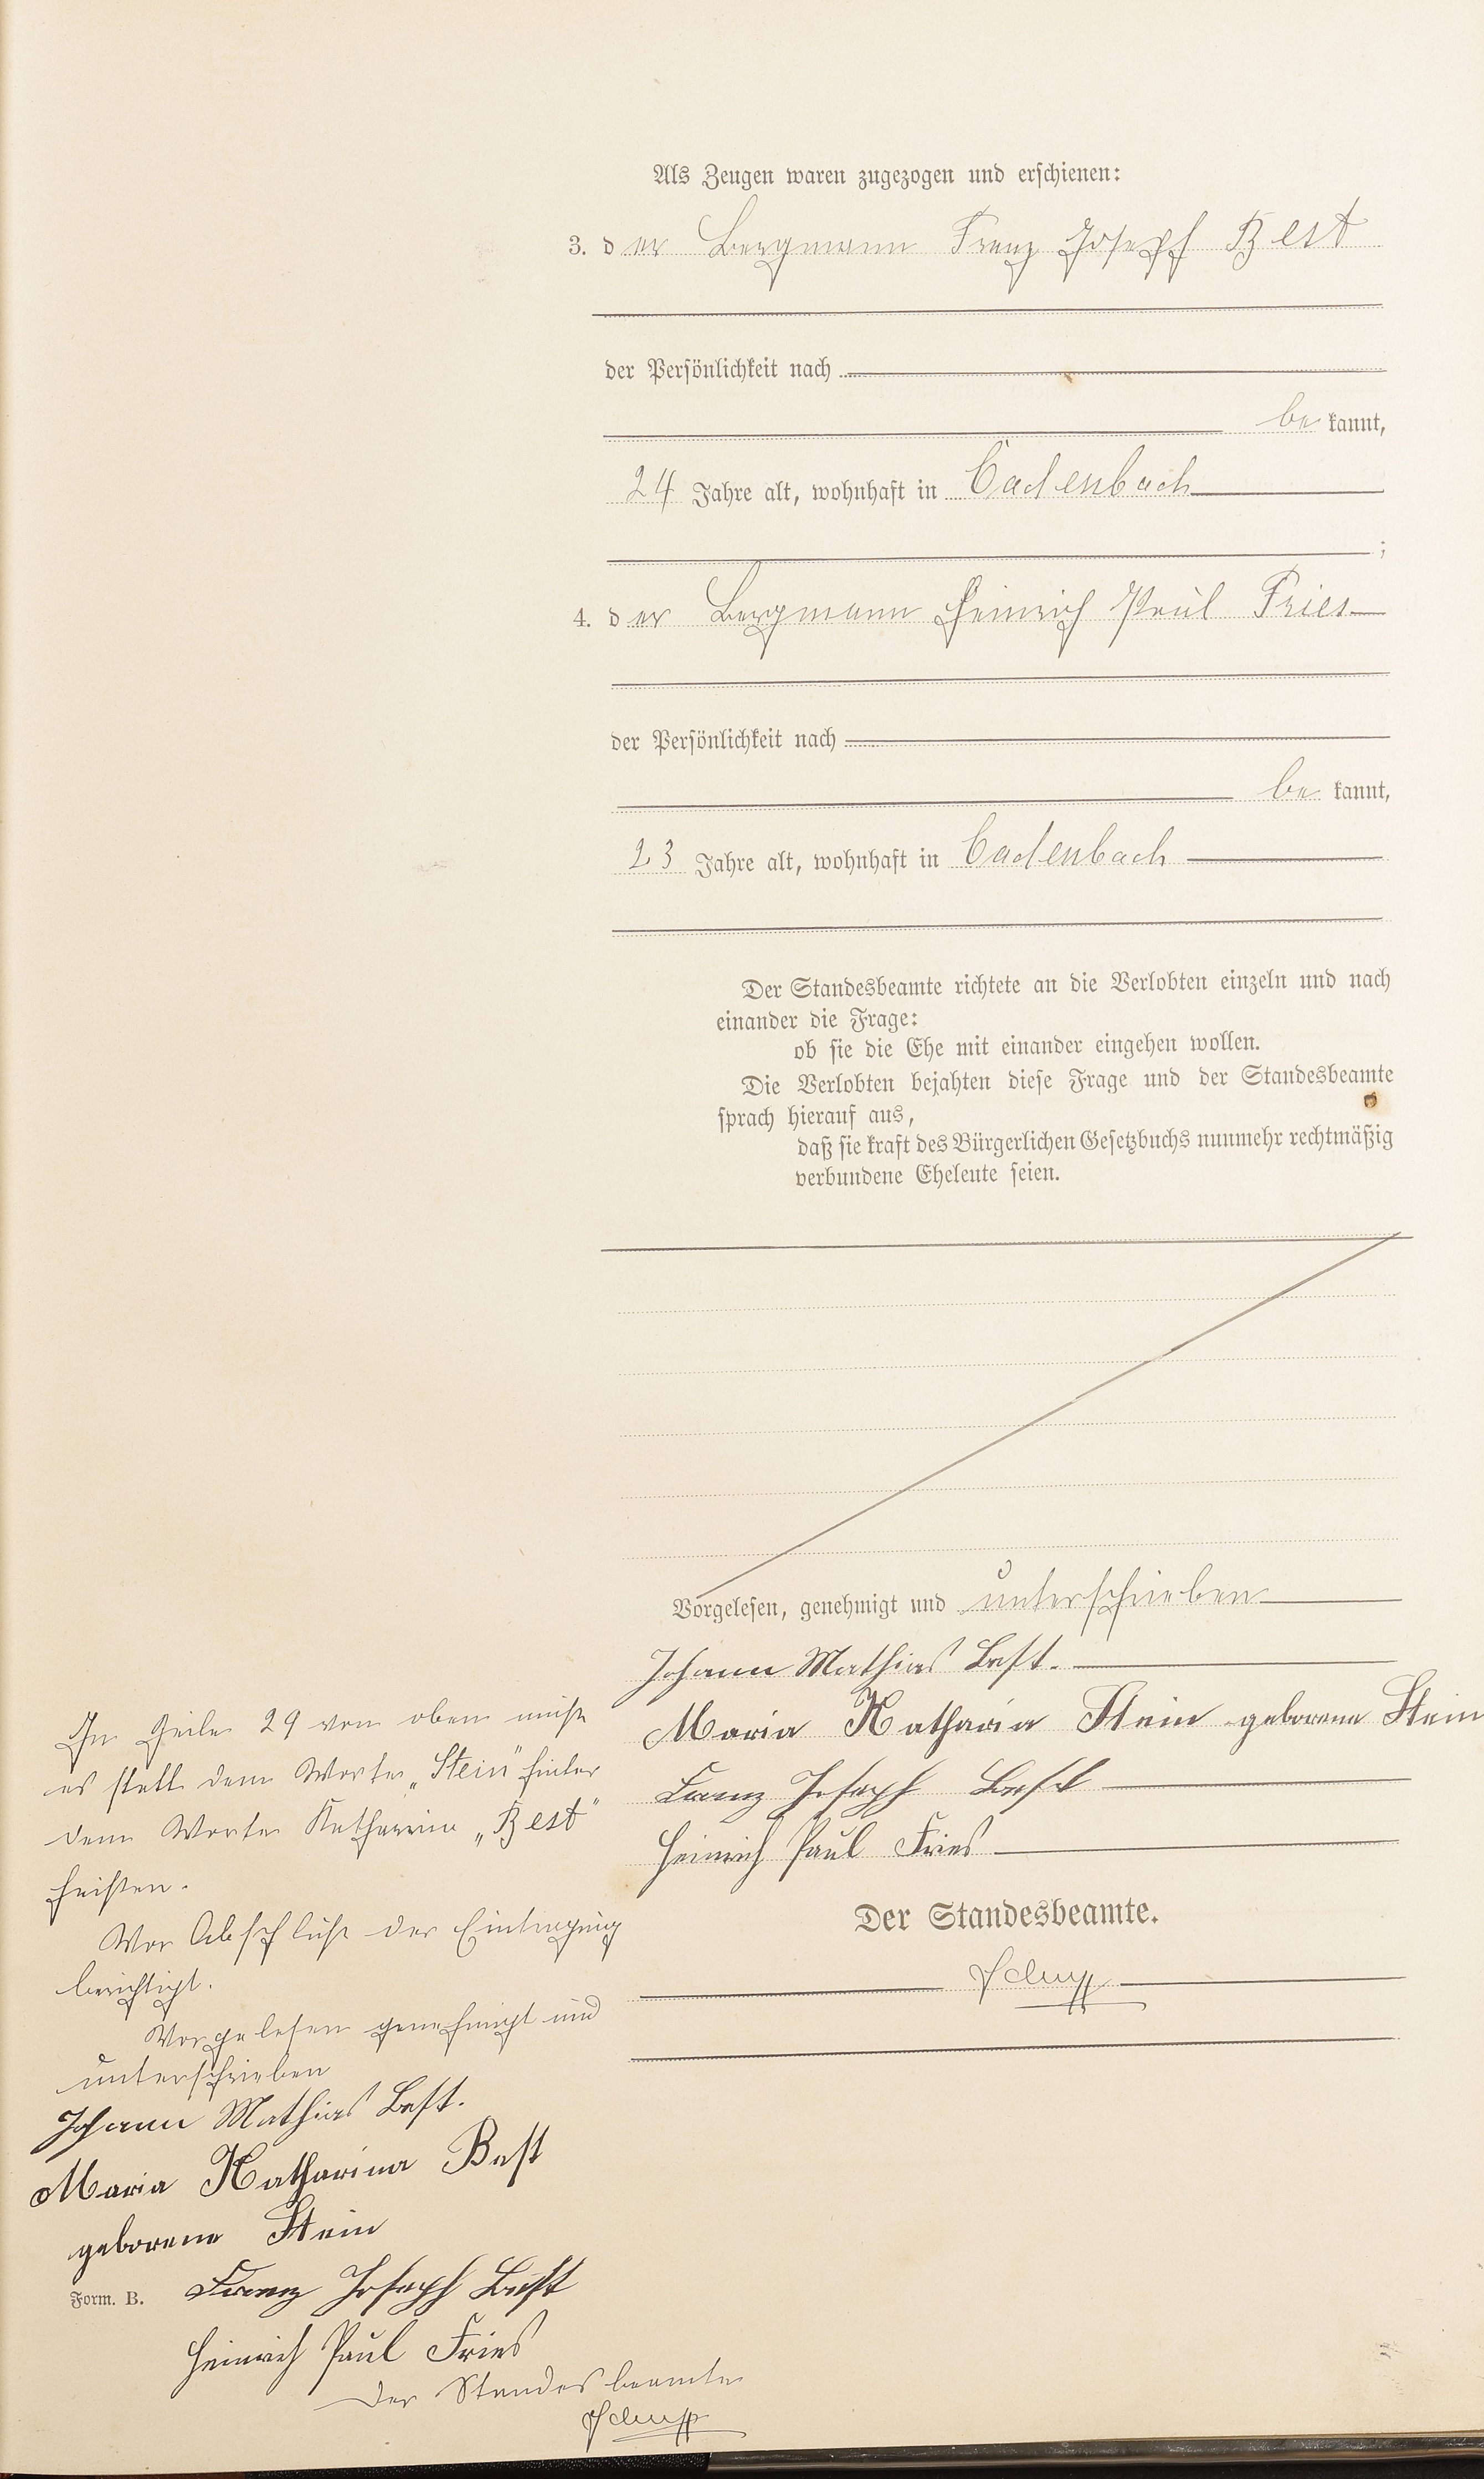 Als Zeugen waren zugezogen und erschienen:
3. der Bergmann Franz Joseph Best
der Persönlichkeit nach
be kannt,
24 Jahre alt, wohnhaft in Cadenbach
;
4. der Bergmann Heinrich Paul Fries
der Persönlichkeit nach
be kannt,
23 Jahre alt, wohnhaft in Cadenbach
Der Standesbeamte richtete an die Verlobten einzeln und nach
einander die Frage:
ob sie die Ehe mit einander eingehen wollen.
Die Verlobten bejahten diese Frage und der Standesbeamte
sprach hierauf aus,
daß sie kraft des Bürgerlichen Gesetzbuchs nunmehr rechtmäßig
verbundene Eheleute seien.
Vorgelesen, genehmigt und unterschrieben
Johann Mathias Best.
Maria Katharia Stein geborene Stein
Franz Joseph Best
Heinrich Paul Fries
Der Standesbeamte.
In Zeile 29 von oben muß
es statt dem Worte „Stein" hinter
dem Worte Katharina „Best"
heißen.
Vor Abschluß der Eintragung
berichtigt.
Vorgelesen genehmigt und
unterschrieben
Johann Mathias Best.
Maria Katharina Best
geborene Stein
Form. B.
Franz Joseph Best
Heinrich Paul Fries
Der Standesbeamte